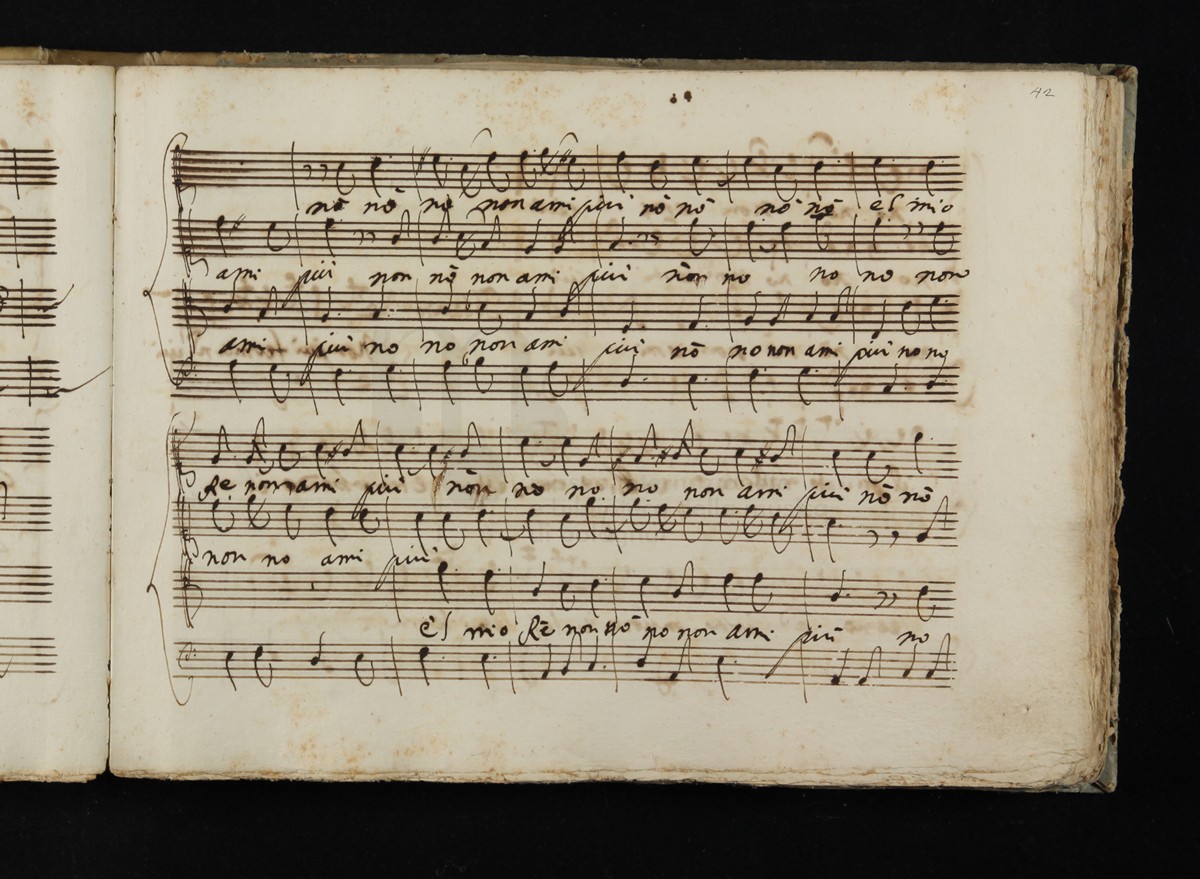 42
nō nō no non ami piu nō nō nō nō el mio
ami piu non nō non ami piu nōn no no no non
ami piu no no non ami piu nō no non ami piu no no
Re nōn ami piu nōn no no no non ami piu nō nō
non no ami piu
el mio Rē non nō no non ami piu no